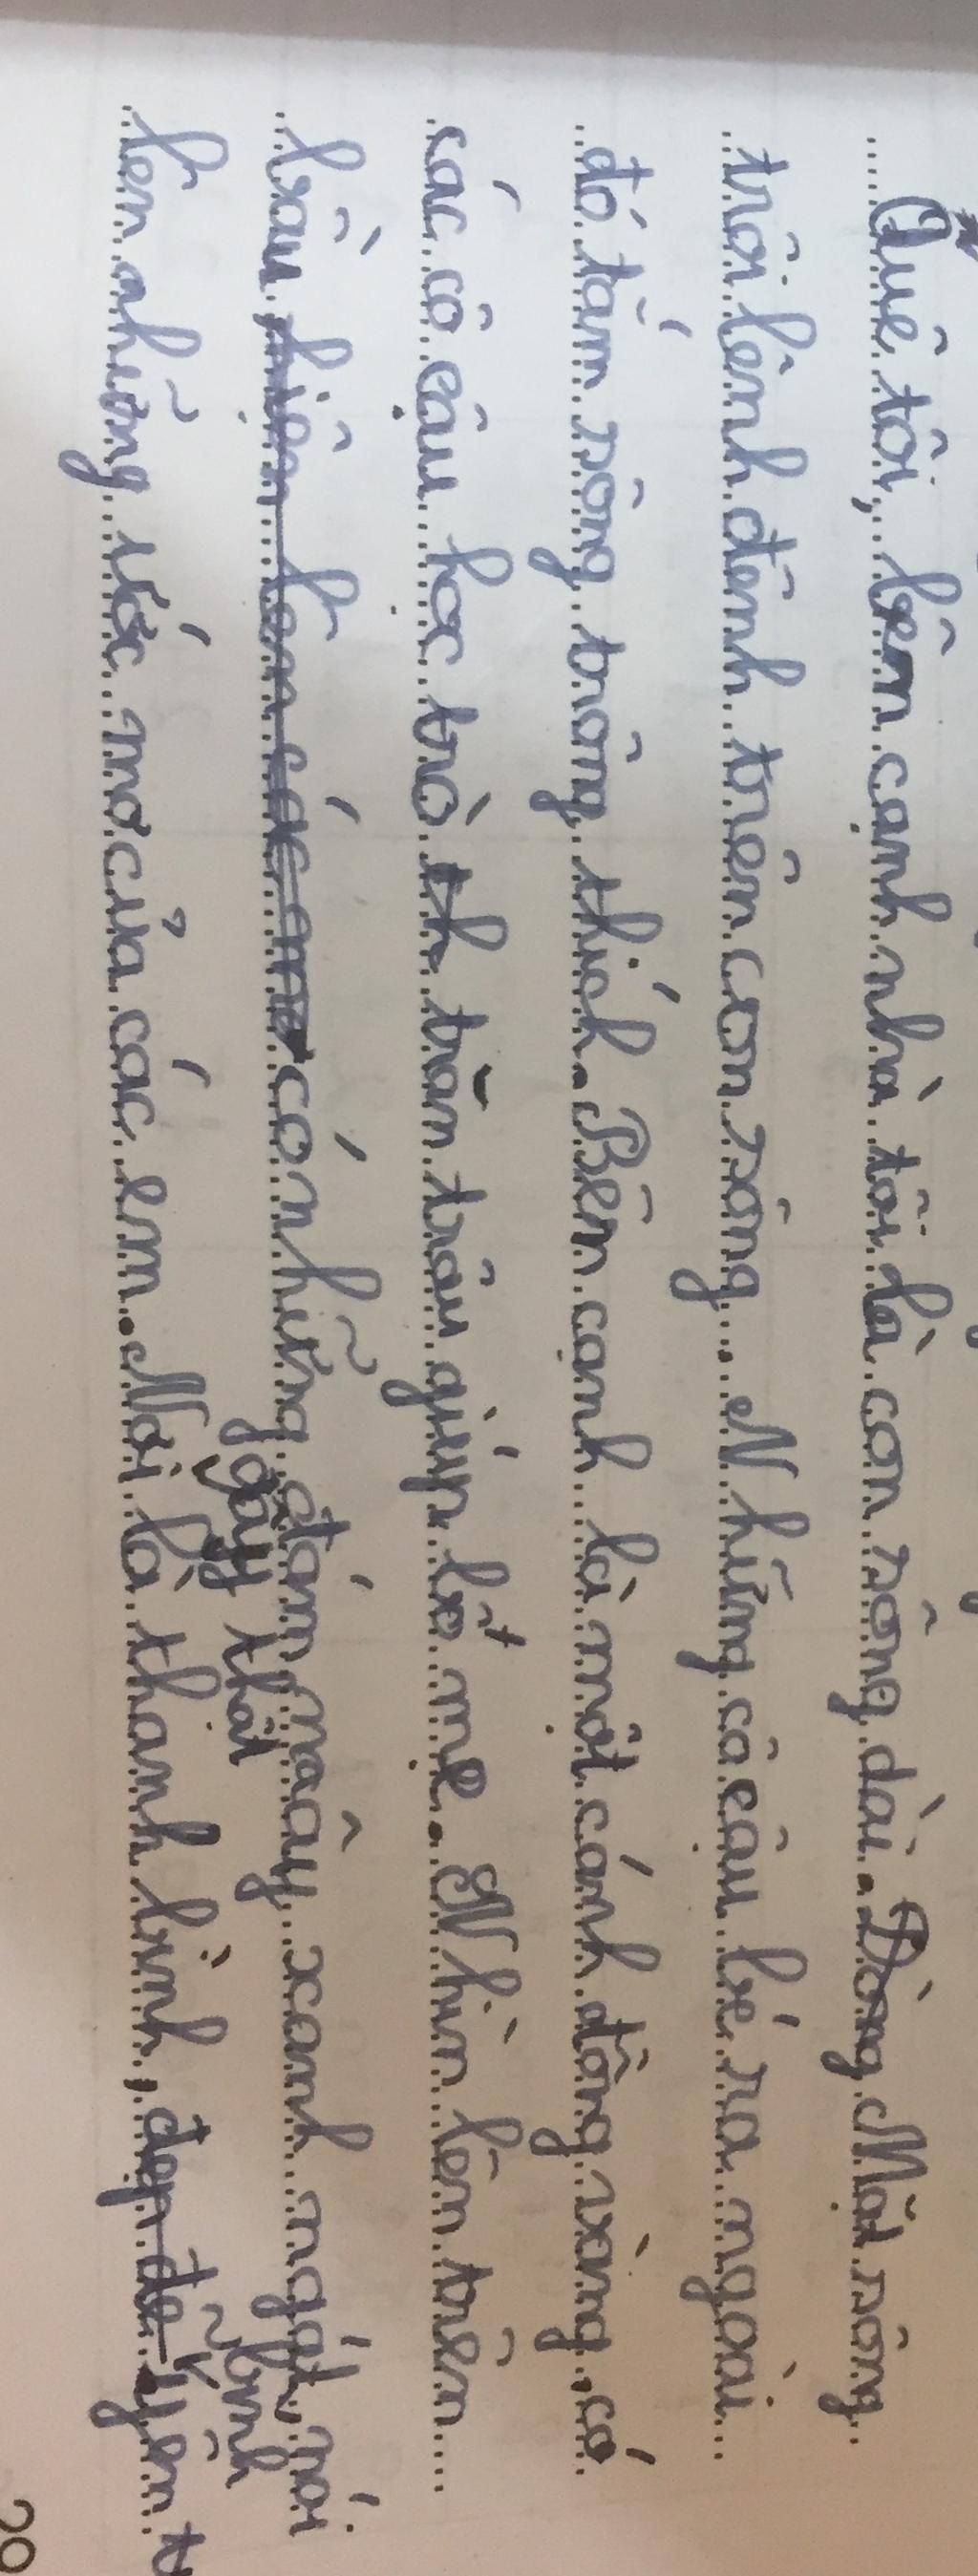 Quê tôi, bên cạnh nhà tôi là con sông dài. Dòng Mặt sông
trôi lênh đênh trên con sông... Những cô cậu bé ra ngoài
đó tắm sông trông thích. Bên cạnh là một cánh đồng vàng, có
các cô cậu học trò th trăn trâu giúp bố mẹ. Nhìn lên trên
bầu, hiện lên các em có những đám mây xanh ngát, nói
lên những ước mơ của các em. Nơi là thanh bình, đẹp đẽ yên
gây thật bình